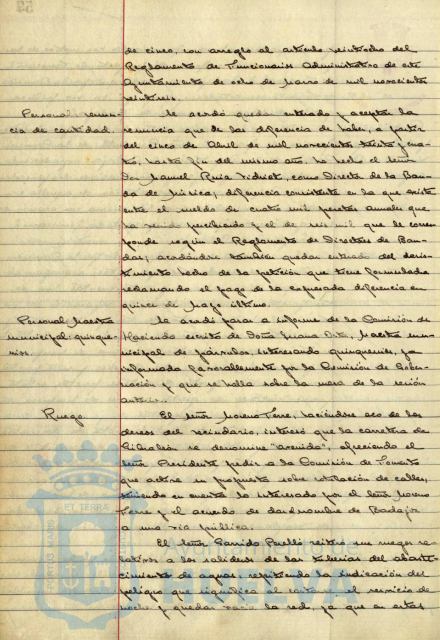 de cinco, con arreglo al artículo veintiocho del
Reglamento de Funcionarios Administrativos de este
Ayuntamiento de ocho de Marzo de mil novecientos
veintiseis.
Personal: renun-
cia de cantidad.
Se acordó quedar enterado y aceptar la
renuncia que de las diferencia de haber, a partir
del cinco de Abril de mil novecientos treinta y cua-
tro, hasta fin del mismo año, ha hecho el señor
Don Manuel Ruiz Vidriet, como Director de la Ban-
da de Música, diferencia consistente en la que existe
entre el sueldo de cuatro mil pesetas anuales que
ha venido percibiendo y el de seis mil que le corres-
ponde según el Reglamento de Directores de Ban-
das; acordándose también quedar enterado del desis-
timiento hecho de la petición que tiene formulada
reclamando el pago de la expresada diferencia en
quince de Mayo último.
Personal: Maestra
municipal: quinque-
nios.
Se acordó pasar a informe de la Comisión de
Hacienda escrito de Doña Juana Orta, Maestra mu-
nicipal de párvulos, interesando quinquenios, ya
informado favorablemente por la Comisión de Gober-
nación y que se halla sobre la mesa de la sesión
anterior.
Ruego.
El señor Moreno Terre, haciéndose eco de los
deseos del vecindario, interesó que la carretera de
Gibraleón se denomine "avenida", ofreciendo el
señor Presidente pedir a la Comisión de Fomento
que active su propuesta sobre rotulación de calles,
teniendo en cuenta lo interesado por el señor Moreno
Terre y el acuerdo de dar el nombre de Badajoz
a una vía pública.
El señor Garrido Perelló reitera sus ruegos re-
lativos a las salideros de las tuberias del abaste-
cimiento de aguas, repitiendo la indicación del
peligro que significa al cortarse el servicio de
noche y quedar vacia la red, ya que en estas
PORTUS MARIS
ET TERRAE